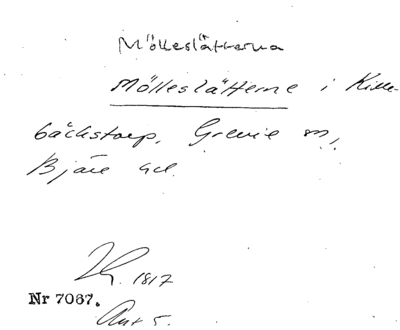 Mölleslätterna
Mölleslätterne i Kille-
bäckstorp, Grevie sn,
Bjäre hd.
1817
Nr 7067.
Akt 5.